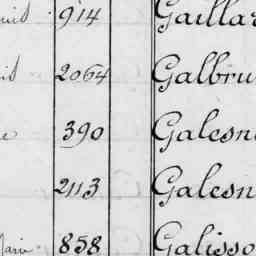 914 Gaillar
2064 Galbru
390 Galesn
2113 Galesn
Marie 858 Galisso